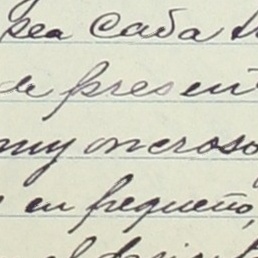 sea cada
de presen
muy oneroso
en pequeño,
el